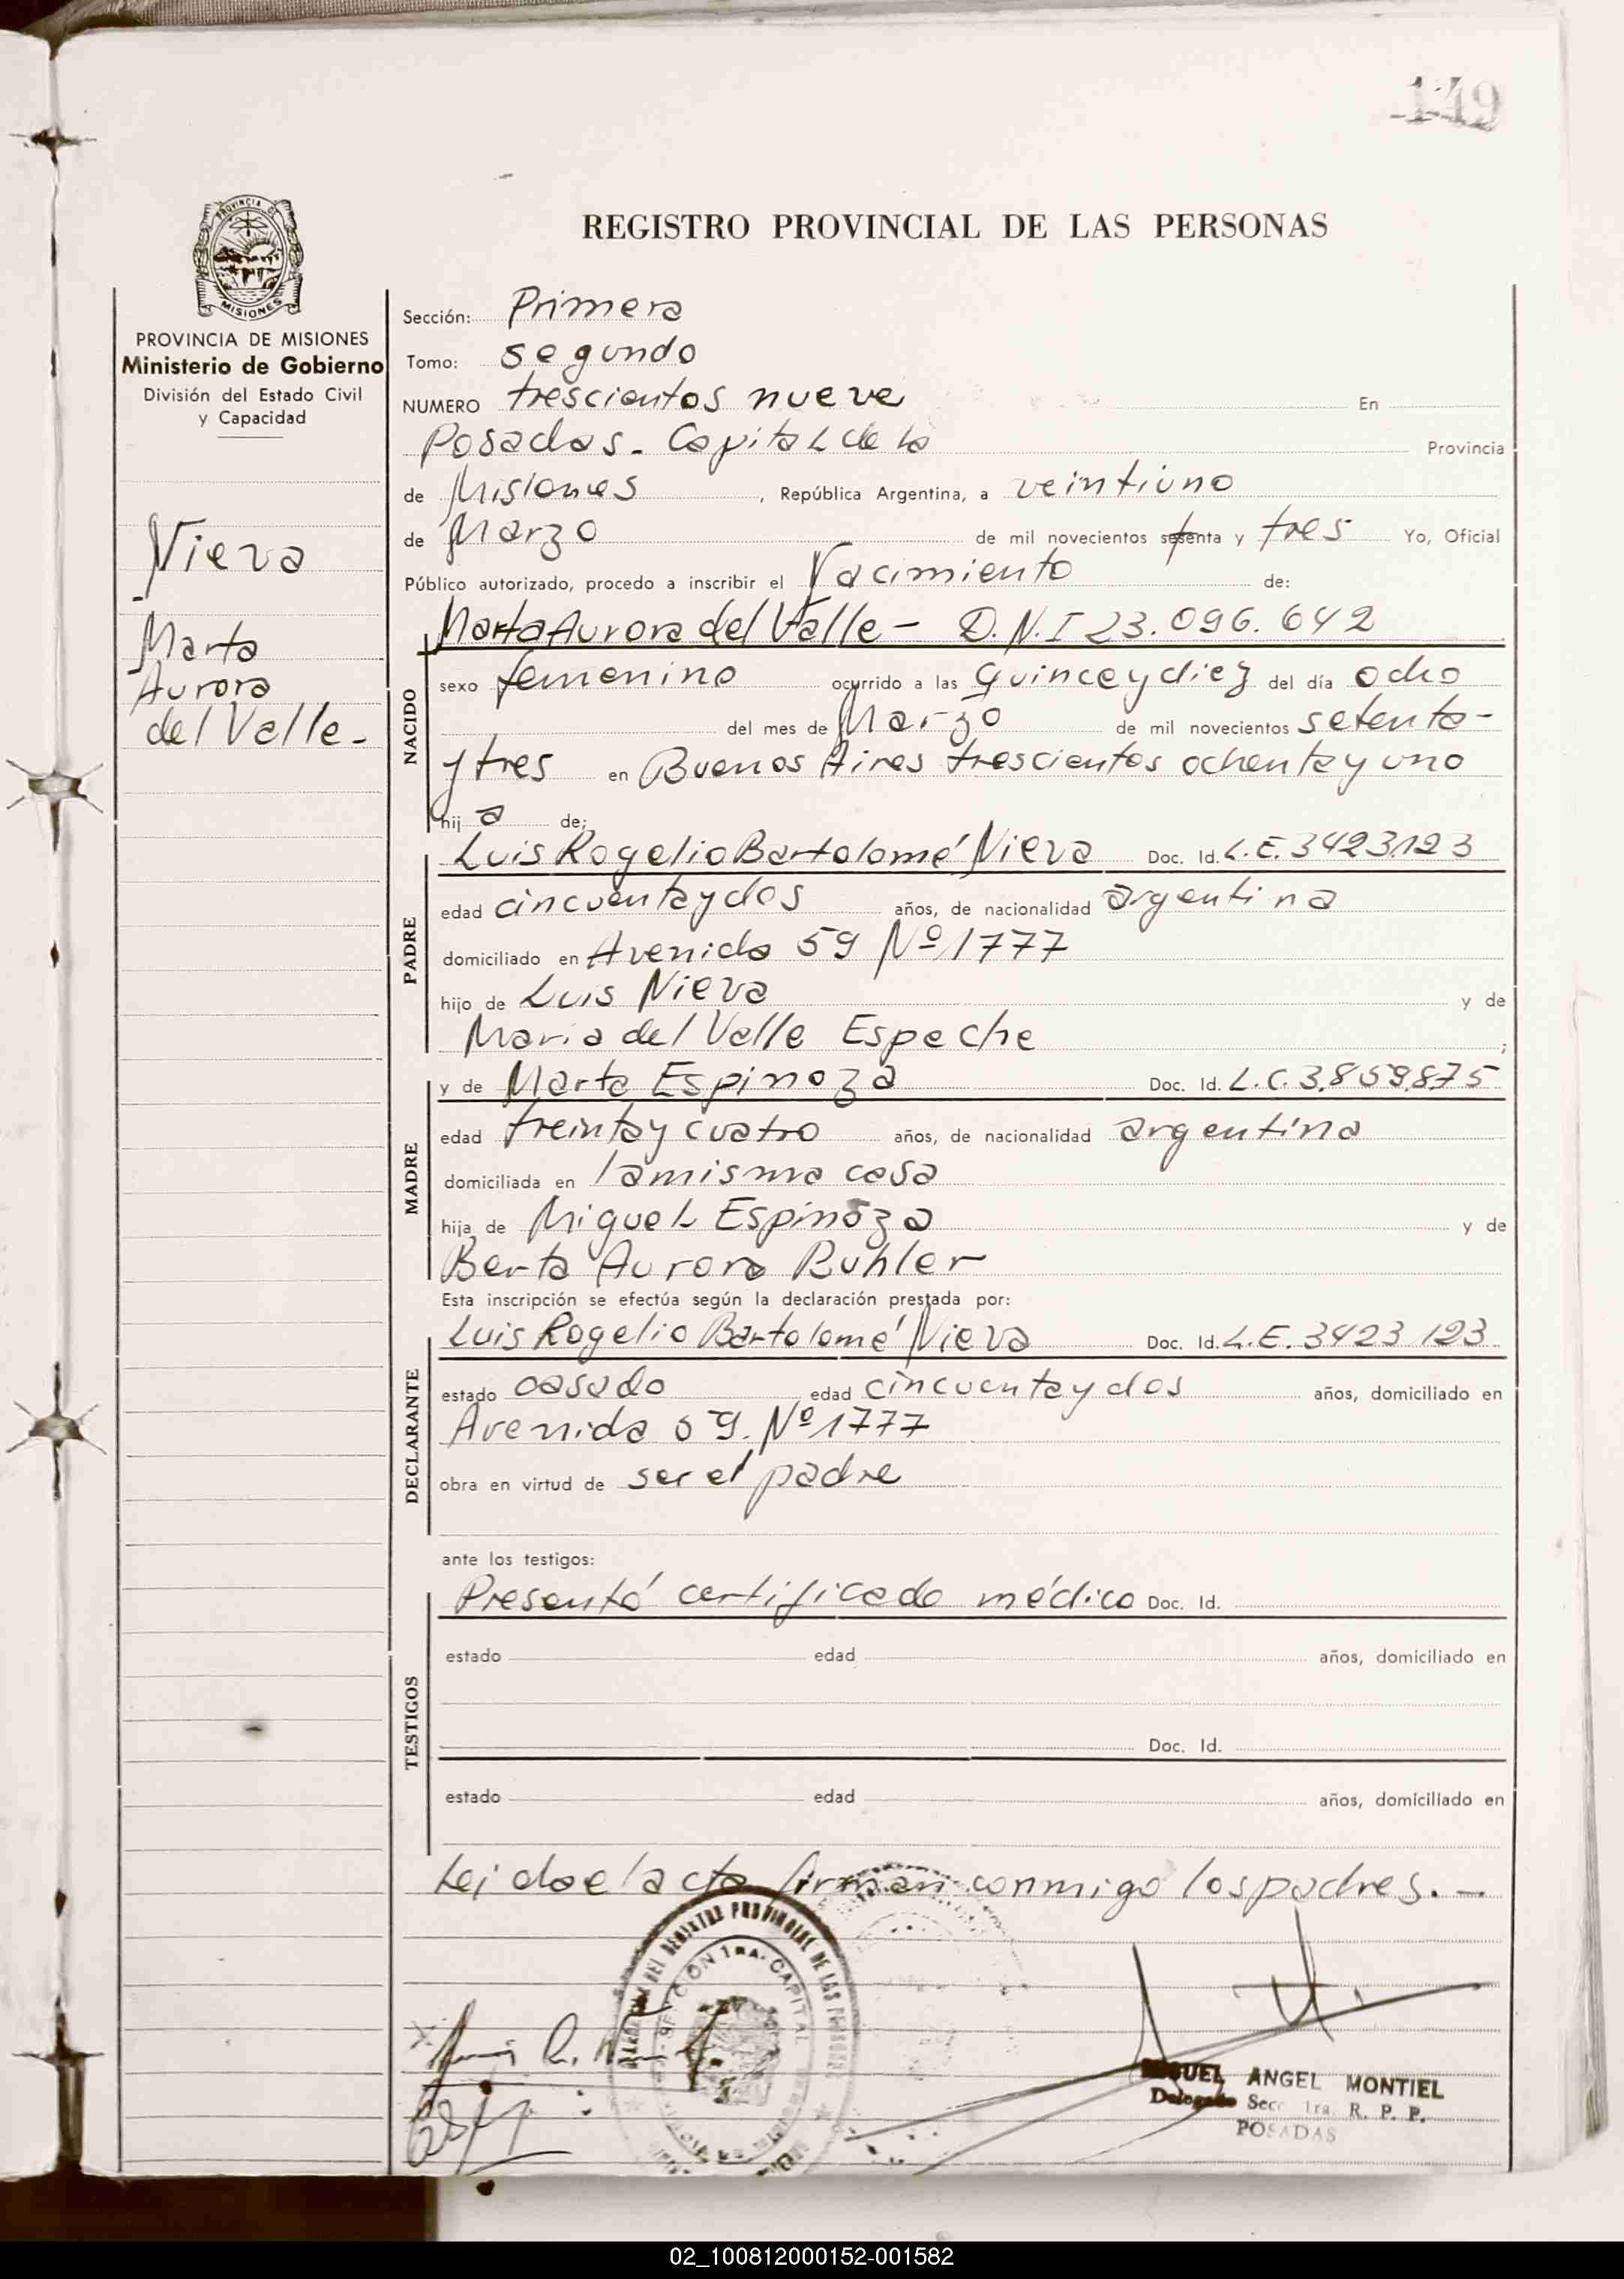 149
REGISTRO PROVINCIAL DE LAS PERSONAS
PROVINCIA DE MISIONES
Ministerio de Gobierno
División del Estado Civil
y Capacidad
Nieva
Marta
Aurora
del Valle-
Sección: Primera
Tomo: segundo
NUMERO trescientos nueve En
Posadas. Capital de la Provincia
de Misiones, República Argentina, a veintiuno
de Marzo de mil novecientos setenta y tres Yo, Oficial
Público autorizado, procedo a inscribir el Nacimiento de:
NACIDO
Marta Aurora del Valle - D.N.I 23.096.642
sexo femenino ocurrido a las quince y diez del día ocho
del mes de Marzo de mil novecientos setenta-
y tres en Buenos Aires trescientos ochenta y uno
hij a de:
PADRE
Luis Rogelio Bartolomé Nieva Doc. Id. L.E. 3423.123
edad cincuenta y dos años, de nacionalidad argentina
domiciliado en Avenida 59 Nº 1777
hijo de Luis Nieva y de
Maria del Valle Espeche ;
MADRE
y de Marta Espinoza Doc. Id. L.C. 3.859.875
edad treinta y cuatro años, de nacionalidad argentina
domiciliada en la misma casa
hija de Miguel Espinoza y de
Berta Aurora Ruhler
Esta inscripción se efectúa según la declaración prestada por:
DECLARANTE
Luis Rogelio Bartolomé Nieva Doc. Id. L.E. 3423 123
estado casado edad cincuenta y dos años, domiciliado en
Avenida 59. Nº 1777
obra en virtud de ser el padre
ante los testigos:
TESTIGOS
Presentó certificado médico Doc. Id.
estado edad años, domiciliado en
Doc. Id.
estado edad años, domiciliado en
Leida el acta firman conmigo los padres. -
MIGUEL ANGEL MONTIEL
Delegado Secc 1ra. R. P. P.
POSADAS
02_100812000152-001582